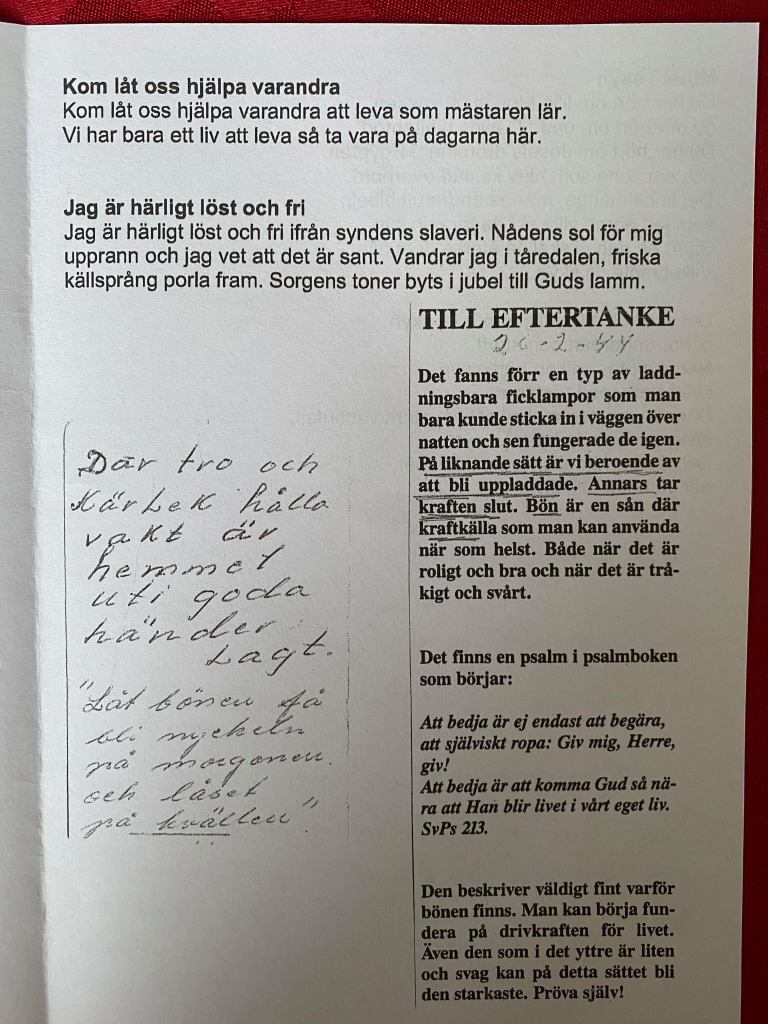 Kom låt oss hjälpa varandra
Kom låt oss hjälpa varandra att leva som mästaren lär.
Vi har bara ett liv att leva så ta vara på dagarna här.
Jag är härligt löst och fri
Jag är härligt löst och fri ifrån syndens slaveri. Nådens sol för mig
upprann och jag vet att det är sant. Vandrar jag i tåredalen, friska
källsprång porla fram. Sorgens toner byts i jubel till Guds lamm.
Där tro och
Kärlek hålla
vakt är
hemmet
uti goda
händer
Lagt.
"Låt bönen få
bli nyckeln
på morgonen
och låset
på kvällen"
TILL EFTERTANKE
Det fanns förr en typ av ladd-
ningsbara ficklampor som man
bara kunde sticka in i väggen över
natten och sen fungerade de igen.
På liknande sätt är vi beroende av
att bli uppladdade. Annars tar
kraften slut. Bön är en sån där
kraftkälla som man kan använda
när som helst. Både när det är
roligt och bra och när det är trå-
kigt och svårt.
Det finns en psalm i psalmboken
som börjar:
Att bedja är ej endast att begära,
att själviskt ropa: Giv mig, Herre,
giv!
Att bedja är att komma Gud så nä-
ra att Han blir livet i vårt eget liv.
SvPs 213.
Den beskriver väldigt fint varför
bönen finns. Man kan börja fun-
dera på drivkraften för livet.
Även den som i det yttre är liten
och svag kan på detta sättet bli
den starkaste. Pröva själv!